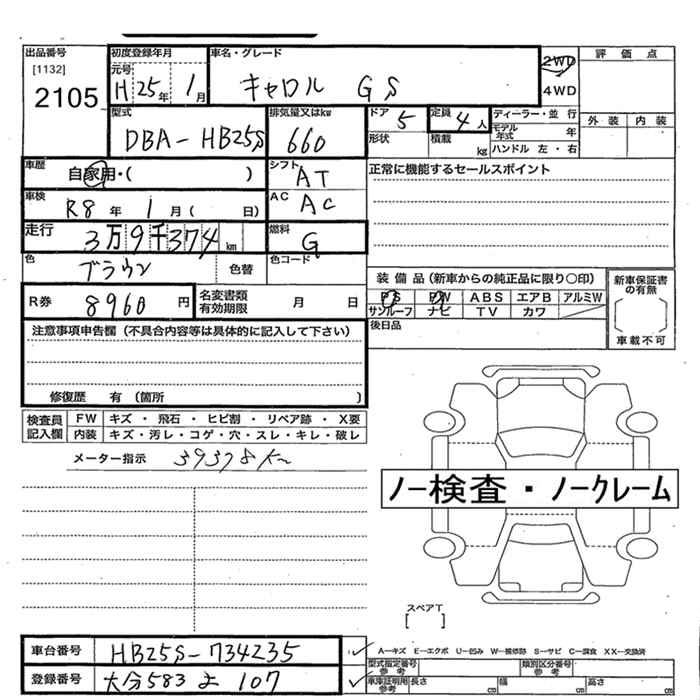 出品番号 初度登録年月 車名・グレード 2WD 評価点
[1132] 元号 H 25年 1月 キャロル GS 4WD
2105
型式 DBA-HB25S 排気量又はkw 660 ドア 5 定員 4人 ディーラー・並行 外装 内装
形状 積載 kg モデル年式 年
ハンドル 左・右
車歴 自家用・( ) シフト AT 正常に機能するセールスポイント
車検 R8年 1月( 日) AC AC
走行 3万9千374km 燃料 G
色 ブラウン 色替 色コード
装備品(新車からの純正品に限り○印) 新車保証書の有無
R券 8960円 名変書類有効期限 月 日 PS PW ABS エアB アルミW
サンルーフ ナビ TV カワ
後日品 車載不可
注意事項申告欄(不具合内容等は具体的に記入して下さい)
修復歴 有(箇所 )
検査員記入欄 FW キズ・飛石・ヒビ割・リペア跡・X要
内装 キズ・汚レ・コゲ・穴・スレ・キレ・破レ
メーター指示 39378K
ノー検査・ノークレーム
スペアT
[ ]
車台番号 HB25S-734235
A-キズ E-エクボ U-凹み W-補修跡 S-サビ C-腐食 XX-交換済
型式指定番号 参考 類別区分番号 参考
登録番号 大分583 よ 107
車庫証明用 参考 長さ cm 幅 cm 高さ cm